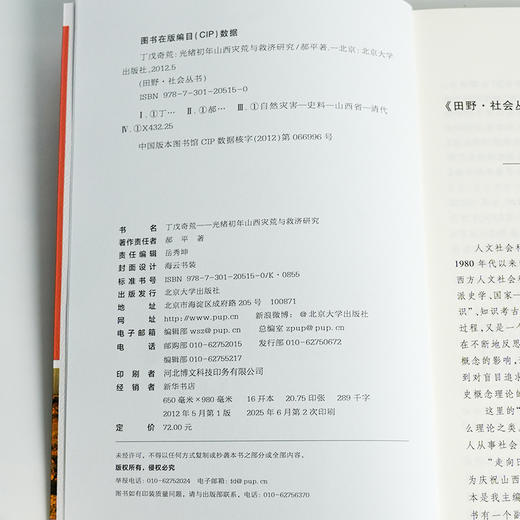 图书在版编目(CIP)数据
丁戊奇荒:光绪初年山西灾荒与救济研究/郝平著.—北京:北京大学
出版社,2012.5
(田野·社会丛书)
ISBN 978-7-301-20515-0
Ⅰ.①丁… Ⅱ.①郝… Ⅲ.①自然灾害—史料—山西省—清代
Ⅳ.①X432.25
中国版本图书馆CIP数据核字(2012)第066996号
书 名 丁戊奇荒——光绪初年山西灾荒与救济研究
著作责任者 郝 平 著
责任编辑 岳秀坤
封面设计 海云书装
标准书号 ISBN 978-7-301-20515-0/K·0855
出版发行 北京大学出版社
地 址 北京市海淀区成府路205号 100871
网 址 http://www.pup.cn 新浪微博:@北京大学出版社
电子邮箱 编辑部 wsz@pup.cn 总编室 zpup@pup.cn
电 话 邮购部 010-62752015 发行部 010-62750672
编辑部 010-62755217
印刷者 河北博文科技印务有限公司
经销者 新华书店
650毫米×980毫米 16开本 20.75印张 289千字
2012年5月第1版 2025年6月第2次印刷
定 价 72.00元
未经许可,不得以任何方式复制或抄袭本书之部分或全部内容。
版权所有,侵权必究
举报电话:010-62752024 电子邮箱:fd@pup.cn
图书如有印装质量问题,请与出版部联系,电话:010-62756370
《田野·社会丛
人文社会科
1980年代以来
西方人文社会科
派史学、国家—
识”、知识考古
过程,又是一个
在不断地反思
概念的影响,
到对盲目追求
史概念理论的
这里的“
么理论之类。
人从事社会
“走向田
为庆祝山西
本是我主编
书有一个副